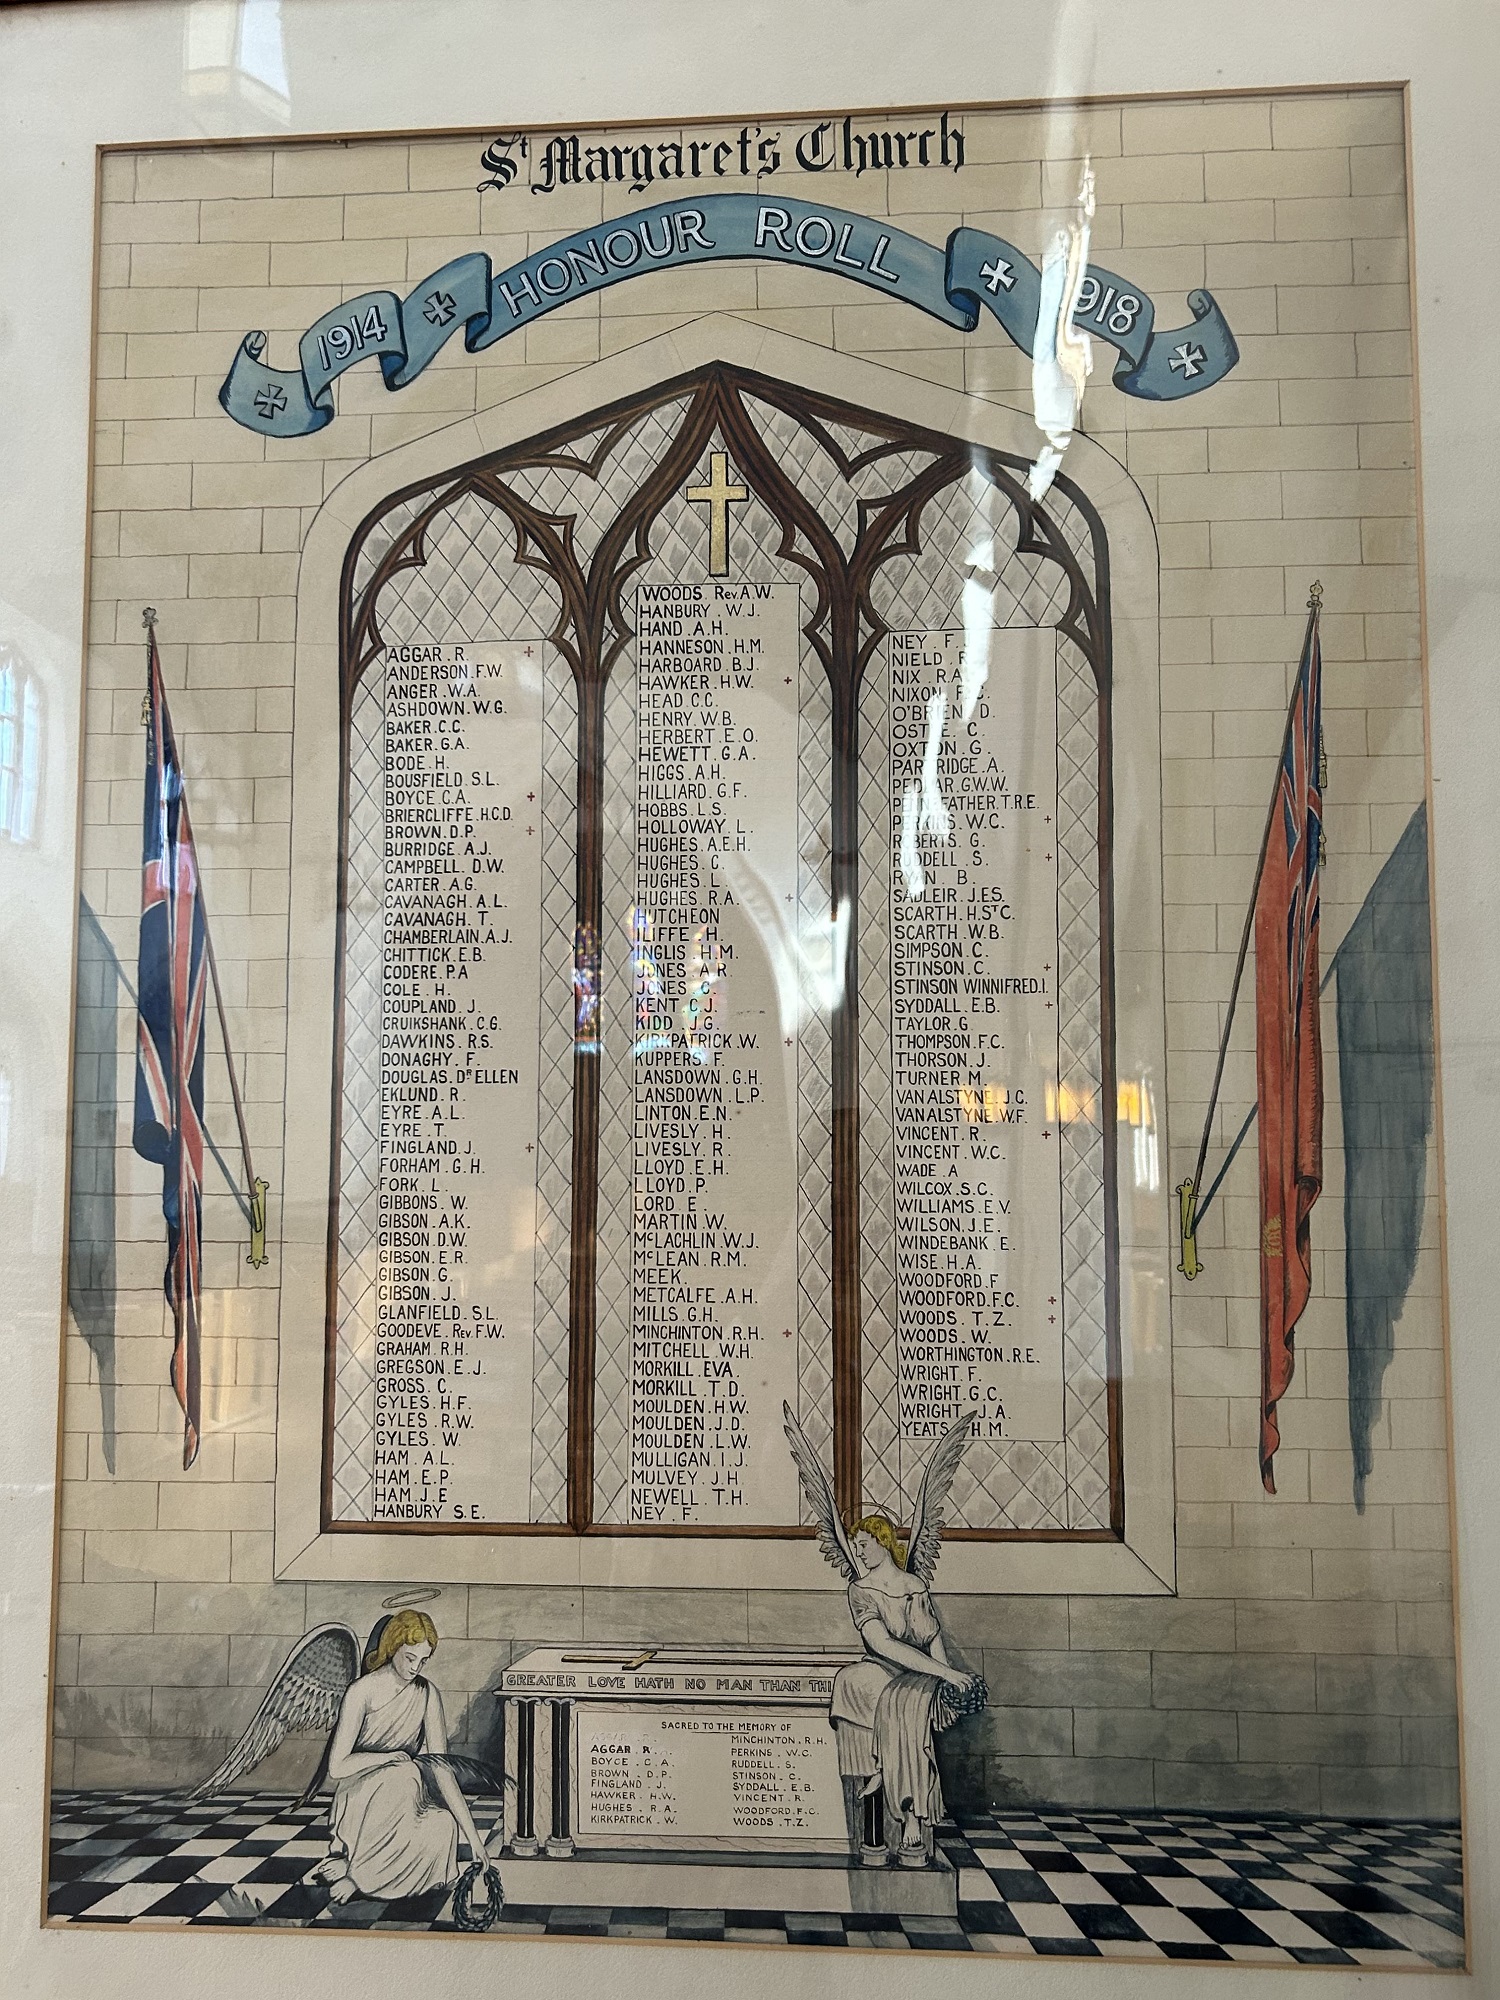 St Margaret's Church
1914 HONOUR ROLL 1918
AGGAR . R. +
ANDERSON . F.W.
ANGER . W.A.
ASHDOWN . W.G.
BAKER . C.C.
BAKER . G.A.
BODE . H.
BOUSFIELD . S.L.
BOYCE . C.A. +
BRIERCLIFFE . H.C.D.
BROWN . D.P. +
BURRIDGE . A.J.
CAMPBELL . D.W.
CARTER . A.G.
CAVANAGH . A.L.
CAVANAGH . T.
CHAMBERLAIN . A.J.
CHITTICK . E.B.
CODERE . P.A
COLE . H.
COUPLAND . J.
CRUIKSHANK . C.G.
DAWKINS . R.S.
DONAGHY . F.
DOUGLAS . Dr ELLEN
EKLUND . R.
EYRE . A.L.
EYRE . T.
FINGLAND . J. +
FORHAM . G.H.
FORK . L.
GIBBONS . W.
GIBSON . A.K.
GIBSON . D.W.
GIBSON . E.R.
GIBSON . G.
GIBSON . J.
GLANFIELD . S.L.
GOODEVE . Rev. F.W.
GRAHAM . R.H.
GREGSON . E.J.
GROSS . C.
GYLES . H.F.
GYLES . R.W.
GYLES . W.
HAM . A.L.
HAM . E.P.
HAM . J.E
HANBURY S.E.
WOODS . Rev. A.W.
HANBURY . W.J.
HAND . A.H.
HANNESON . H.M.
HARBOARD . B.J.
HAWKER . H.W. +
HEAD . C.C.
HENRY . W.B.
HERBERT . E.O.
HEWETT . G.A.
HIGGS . A.H.
HILLIARD . G.F.
HOBBS . L.S.
HOLLOWAY . L.
HUGHES . A.E.H.
HUGHES . C.
HUGHES . L.
HUGHES . R.A. +
HUTCHEON
ILIFFE . H.
INGLIS . H.M.
JONES . A.R.
JONES . C.
KENT . C.J.
KIDD . J.G.
KIRKPATRICK . W. +
KUPPERS . F.
LANSDOWN . G.H.
LANSDOWN . L.P.
LINTON . E.N.
LIVESLY . H.
LIVESLY . R.
LLOYD . E.H.
LLOYD . P.
LORD . E.
MARTIN . W.
McLACHLIN . W.J.
McLEAN . R.M.
MEEK.
METCALFE . A.H.
MILLS . G.H.
MINCHINTON . R.H. +
MITCHELL . W.H.
MORKILL . EVA.
MORKILL . T.D.
MOULDEN . H.W.
MOULDEN . J.D.
MOULDEN . L.W.
MULLIGAN . I.J.
MULVEY . J.H.
NEWELL . T.H.
NEY . F.
NEY . F.
NIELD
NIX . R.A.
NIXON . F.C.
O'BRIEN . D.
C.
OXTON . G.
PARTRIDGE . A.
PEDLAR . G.W.W.
PENNEFATHER . T.R.E.
PERKINS . W.C. +
ROBERTS . G.
RUDDELL . S. +
RYAN . B.
SADLEIR . J.E.S.
SCARTH . H.St C.
SCARTH . W.B.
SIMPSON . C.
STINSON . C. +
STINSON WINNIFRED . I.
SYDDALL . E.B. +
TAYLOR . G
THOMPSON . F.C.
THORSON . J.
TURNER . M.
VAN ALSTYNE . J.C.
VAN ALSTYNE . W.F.
VINCENT . R. +
VINCENT . W.C.
WADE . A
WILCOX . S.C.
WILLIAMS . E.V.
WILSON . J.E.
WINDEBANK . E.
WISE . H.A.
WOODFORD . F
WOODFORD . F.C. +
WOODS . T.Z. +
WOODS . W.
WORTHINGTON . R.E.
WRIGHT . F.
WRIGHT . G.C.
WRIGHT . J.A.
YEATS . H.M.
GREATER LOVE HATH NO MAN THAN THI
SACRED TO THE MEMORY OF
AGGAR . R.
BOYCE . C.A.
BROWN . D.P.
FINGLAND . J.
HAWKER . H.W.
HUGHES . R.A.
KIRKPATRICK . W.
MINCHINTON . R.H.
PERKINS . W.C.
RUDDELL . S.
STINSON . C.
SYDDALL . E.B.
VINCENT . R.
WOODFORD . F.C.
WOODS . T.Z.